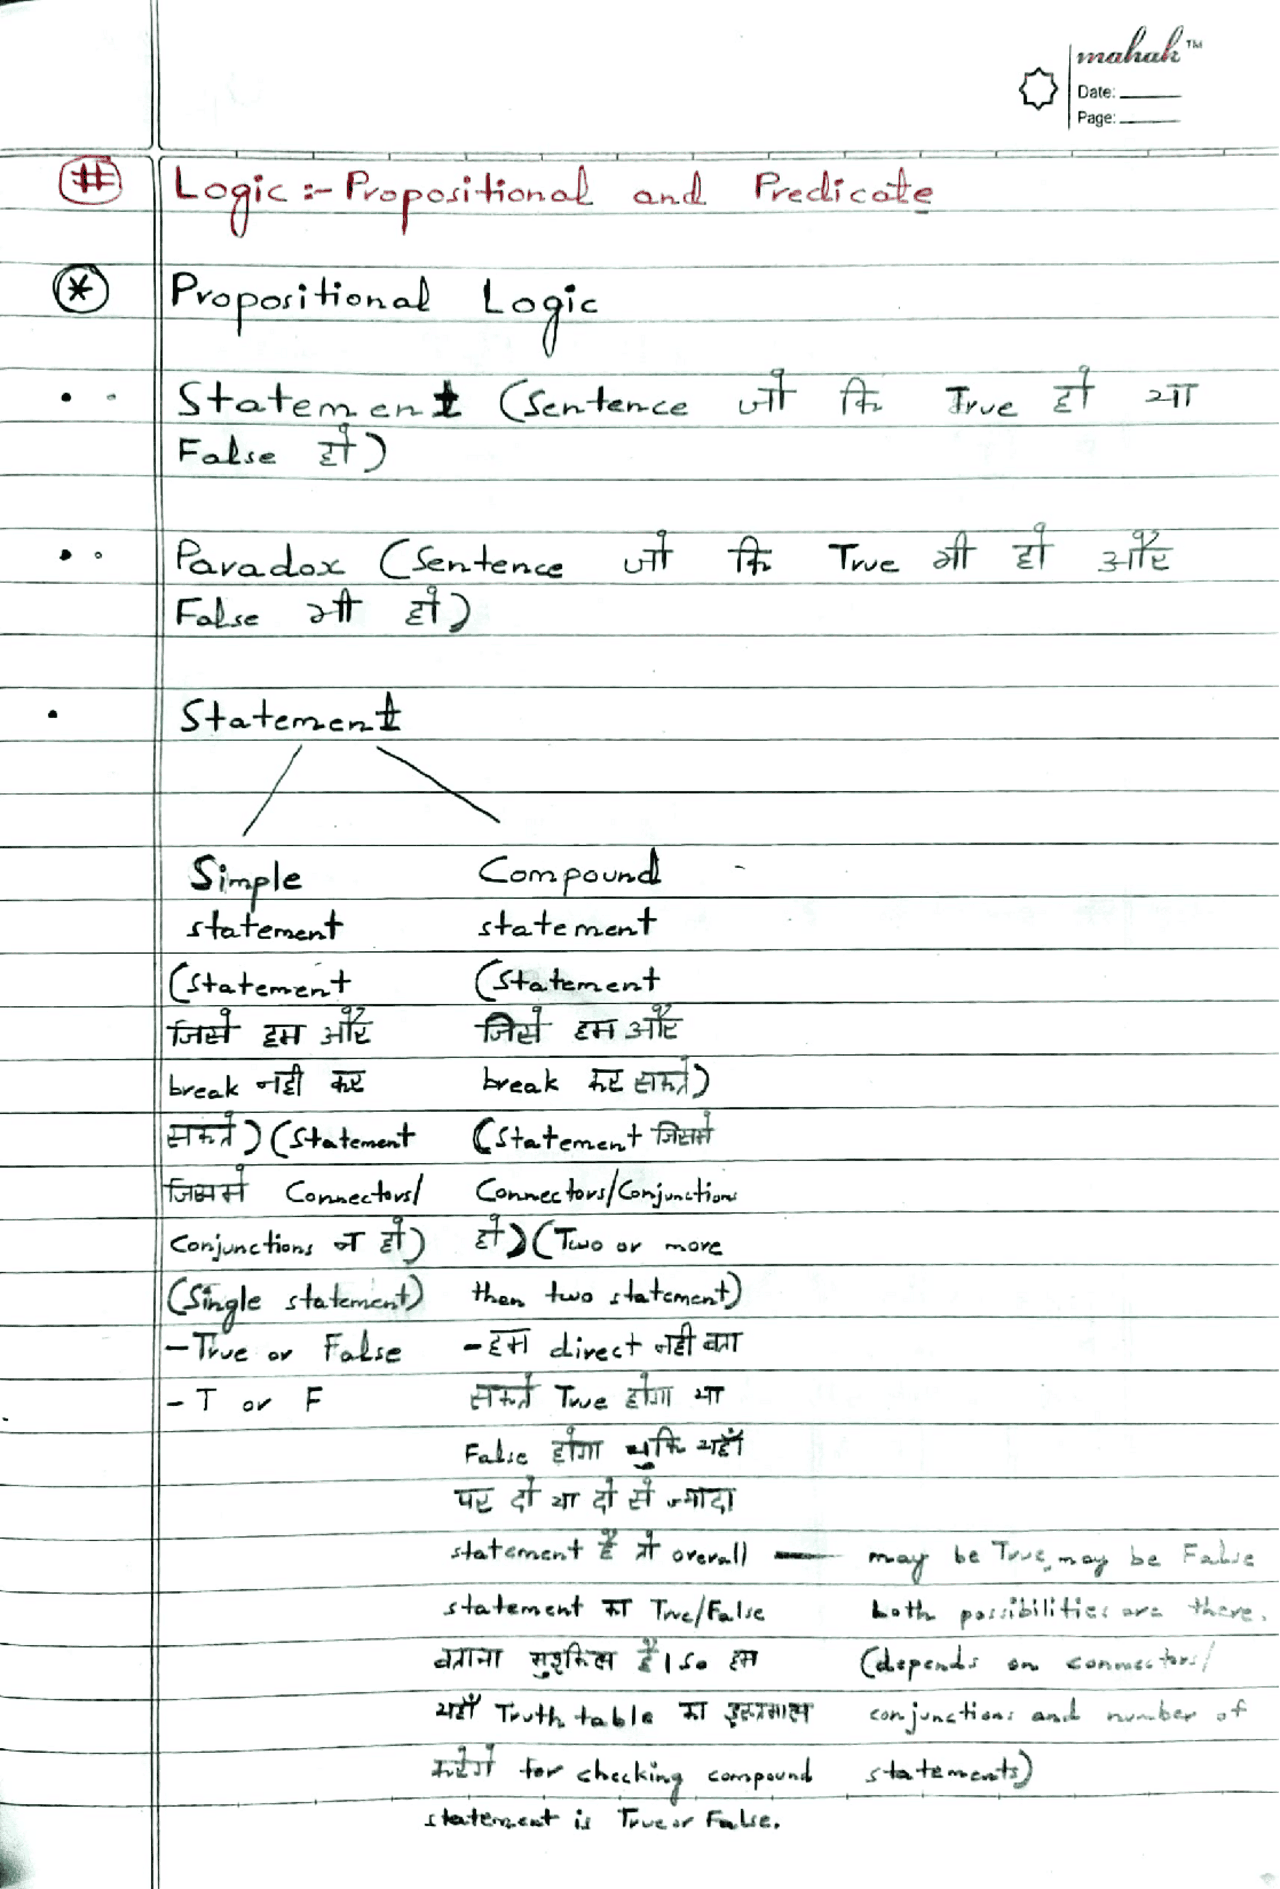 mahak™
Date:
Page:
# Logic :- Propositional and Predicate
* Propositional Logic
Statement (Sentence जो कि True हो या
False हो)
Paradox (Sentence जो कि True भी हो और
False भी हो)
Statement
Simple
statement
(Statement
जिसे हम और
break नही कर
सकते) (Statement
जिसमे Connectors/
Conjunctions न हो)
(Single statement)
- True or False
- T or F
Compound
statement
(Statement
जिसे हम और
break कर सकते)
(Statement जिसमे
Connectors/Conjunctions
हो) (Two or more
then two statement)
- हम direct नही बता
सकते True होगा या
False होगा चुकि यहाँ
पर दो या दो से ज्यादा
statement है तो overall —
statement का True/False
बताना मुश्किल है। So हम
यहाँ Truth table का इस्तमाल
करेगे for checking compound
statement is True or False.
may be True, may be False
both possibilities are there.
(depends on connectors/
conjunctions and number of
statements)